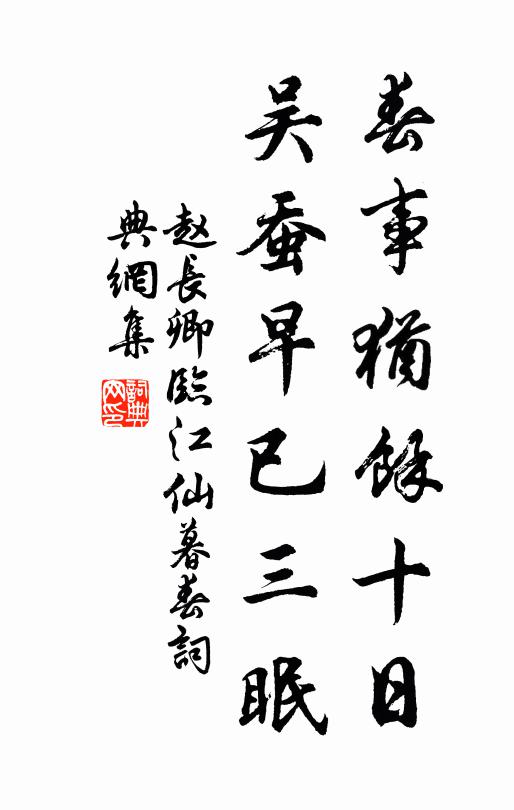 春事猶餘十日
吴蚕早已三眠
赵長卿臨江仙暮春詞
典網集
詞典网印